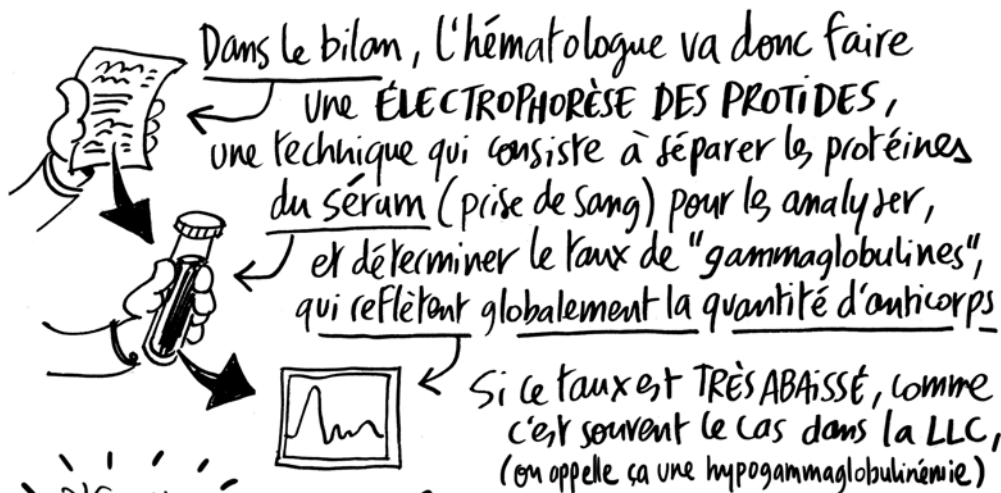 Dans le bilan, l'hématologue va donc faire
une ÉLECTROPHORÈSE DES PROTIDES,
une technique qui consiste à séparer les protéines
du sérum (prise de sang) pour les analyser,
et déterminer le taux de "gammaglobulines",
qui reflètent globalement la quantité d'anticorps
Si ce taux est TRÈS ABAISSÉ, comme
c'est souvent le cas dans la LLC,
(on appelle ça une hypogammaglobulinémie)